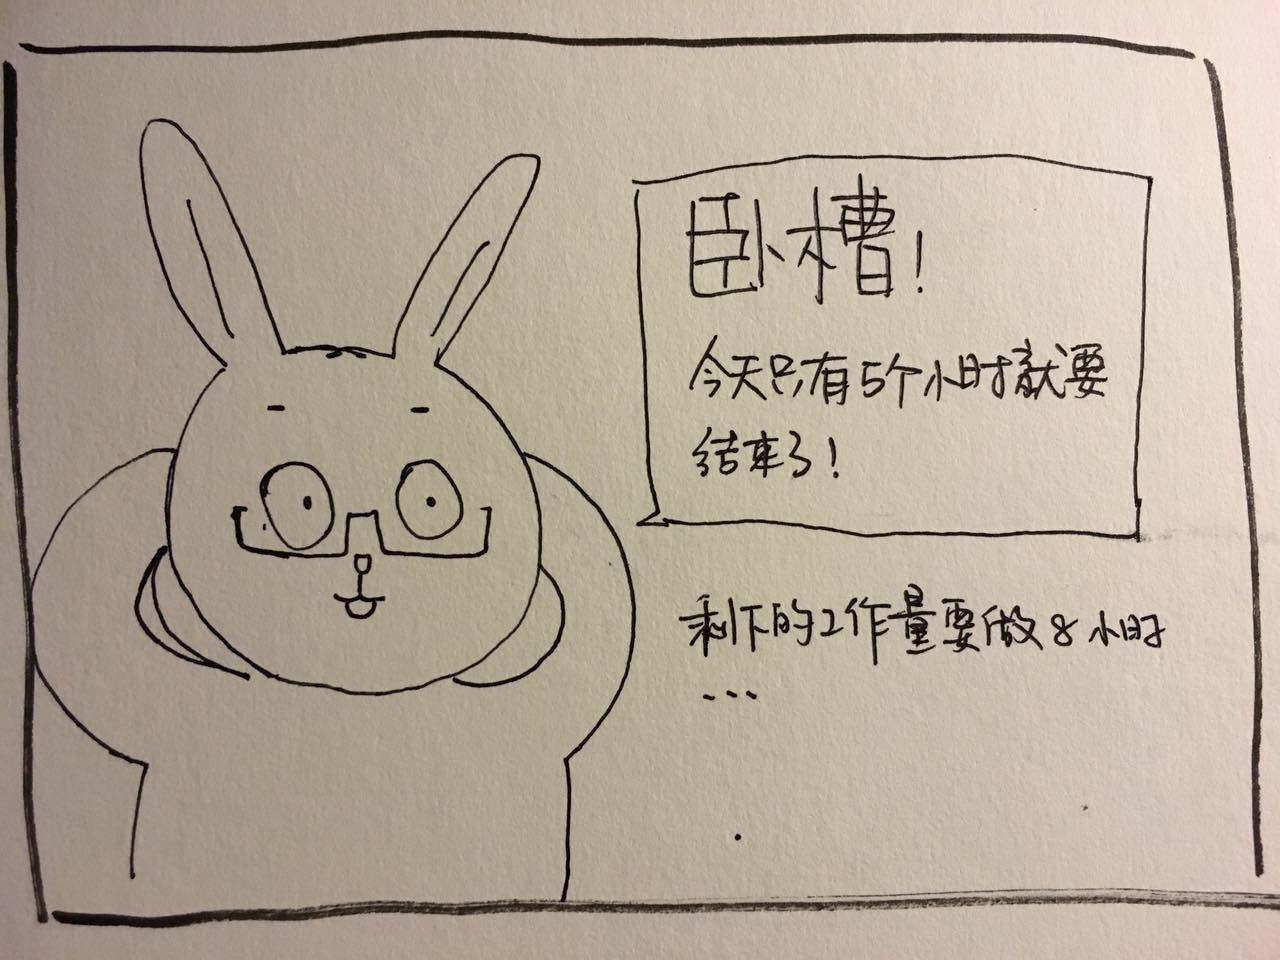 卧槽!
今天只有5个小时就要
结束了!
剩下的工作量要做8小时
...